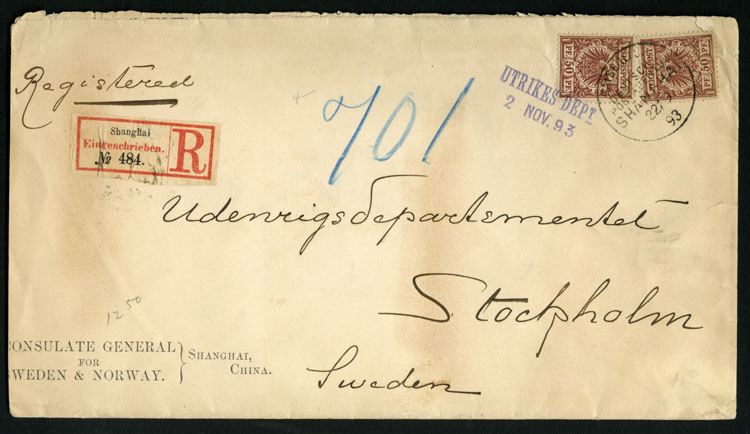 Registered
Shanghai
Eingeschrieben.
№ 484.
R
701
UTRIKES DEPT
2 NOV. 93
50 PF
50 PF
REICHSPOST
SHANGHAI
22/
93
Udenrigsdepartementet
Stockholm
Sweden
1250
CONSULATE GENERAL
FOR
SWEDEN & NORWAY.
SHANGHAI,
CHINA.